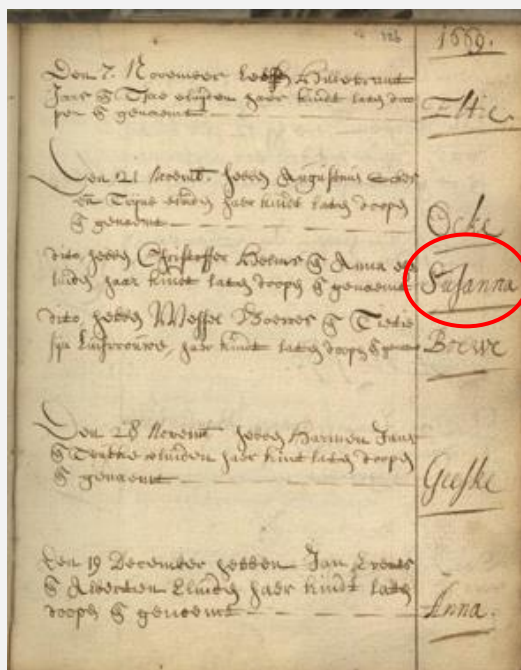 126 1669.
Den 7. November hebben Hillebrant
Jans & Tjae eluijden haer kindt laten doo Eltie.
pen & genaemt
Den 21 Novemb. hebben Augustinus Eckes
en Trijne eluijden haer kindt laten doopen
& genaemt Ocke
dito, hebben Christoffer Helms & Anna eh
luiden haer kindt laten doopen & genaemt Susanna
dito, hebben Wessel Boewes & Tietie
sijn huisvrouwe, haer kindt laten doopen & genaemt Boewe
Den 28 Novemb hebben Harmen Jans
& eluiden haer kint laten doopen
& genaemt Geeske
Den 19 December hebben Jan
& Albertien Eluiden haer kindt laten
doopen & genoemt Anna.